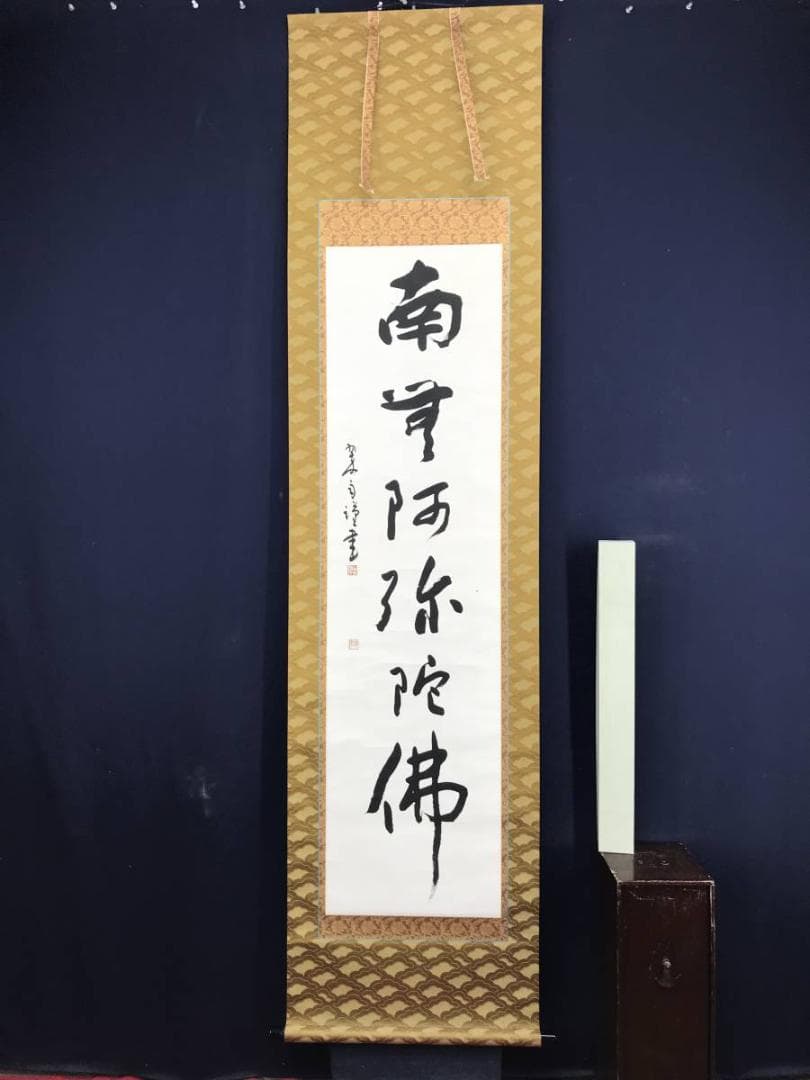 南無阿弥陀佛
謹書